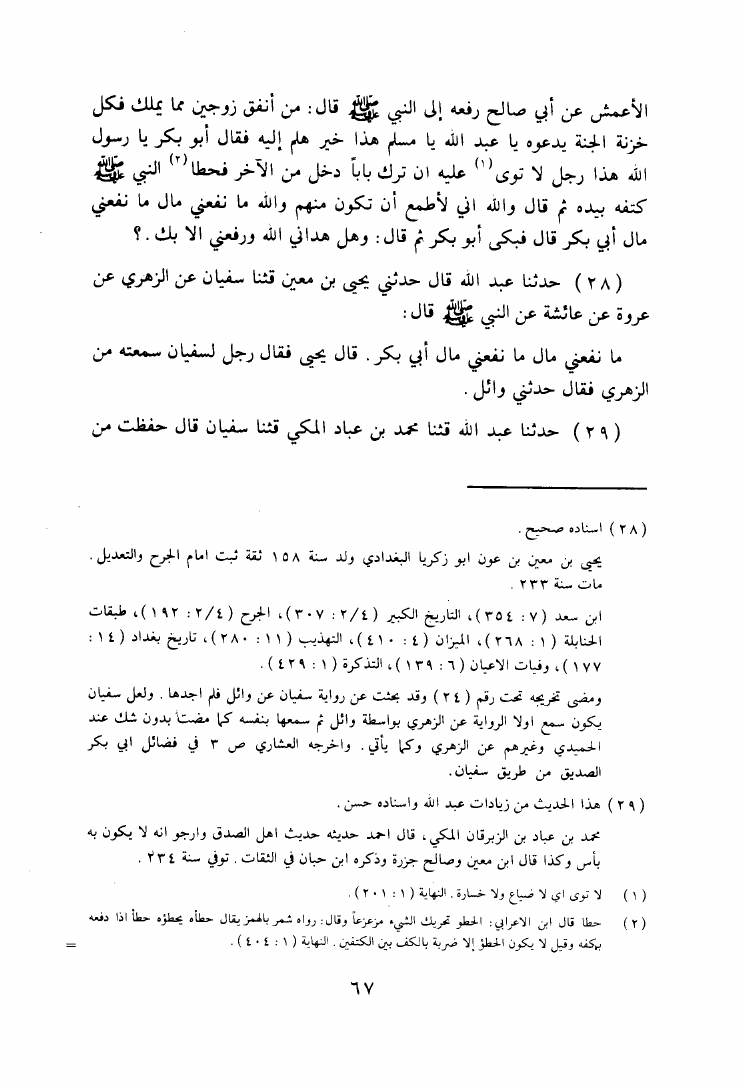 الأعمش عن أبي صالح رفعه إلى النبي ﷺ قال: من أنفق زوجين مما يملك فكل
خزنة الجنة يدعوه يا عبد الله يا مسلم هذا خير هلم إليه فقال أبو بكر يا رسول
الله هذا رجل لا توى(١) عليه ان ترك باباً دخل من الآخر فحطا(٢) النبي ﷺ
كتفه بيده ثم قال والله اني لأطمع أن تكون منهم والله ما نفعني مال ما نفعني
مال أبي بكر قال فبكى أبو بكر ثم قال: وهل هداني الله ورفعني الا بك.؟
(٢٨) حدثنا عبد الله قال حدثني يحيى بن معين قثنا سفيان عن الزهري عن
عروة عن عائشة عن النبي ﷺ قال:
ما نفعني مال ما نفعني مال أبي بكر. قال يحيى فقال رجل لسفيان سمعته من
الزهري فقال حدثني وائل.
(٢٩) حدثنا عبد الله قثنا محمد بن عباد المكي قثنا سفيان قال حفظت من
(٢٨) اسناده صحيح.
يحيى بن معين بن عون ابو زكريا البغدادي ولد سنة ١٥٨ ثقة ثبت امام الجرح والتعديل.
مات سنة ٢٣٣.
ابن سعد (٧: ٣٥٤)، التاريخ الكبير (٢/٤: ٣٠٧)، الجرح (٢/٤: ١٩٢)، طبقات
الحنابلة (١: ٢٦٨)، الميزان (٤: ٤١٠)، التهذيب (١١: ٢٨٠)، تاريخ بغداد (١٤:
١٧٧)، وفيات الاعيان (٦: ١٣٩)، التذكرة (١: ٤٢٩).
ومضى تخريجه تحت رقم (٢٤) وقد بحثت عن رواية سفيان عن وائل فلم اجدها. ولعل سفيان
يكون سمع اولا الرواية عن الزهري بواسطة وائل ثم سمعها بنفسه كما مضت بدون شك عند
الحميدي وغيرهم عن الزهري وكما يأتي. واخرجه العشاري ص ٣ في فضائل ابي بكر
الصديق من طريق سفيان.
(٢٩) هذا الحديث من زيادات عبد الله واسناده حسن.
محمد بن عباد بن الزبرقان المكي، قال احمد حديثه حديث اهل الصدق وارجو انه لا يكون به
بأس وكذا قال ابن معين وصالح جزرة وذكره ابن حبان في الثقات. توفي سنة ٢٣٤.
(١) لا توى اي لا ضياع ولا خسارة. النهاية (١: ٢٠١).
(٢) حطا قال ابن الاعرابي: الحطو تحريك الشيء مزعزعاً وقال: رواه شمر بالهمز يقال حطأه يحطؤه حطأ اذا دفعه
بكفه وقيل لا يكون الحطؤ إلا ضربة بالكف بين الكتفين. النهاية (١: ٤٠٤). =
٦٧